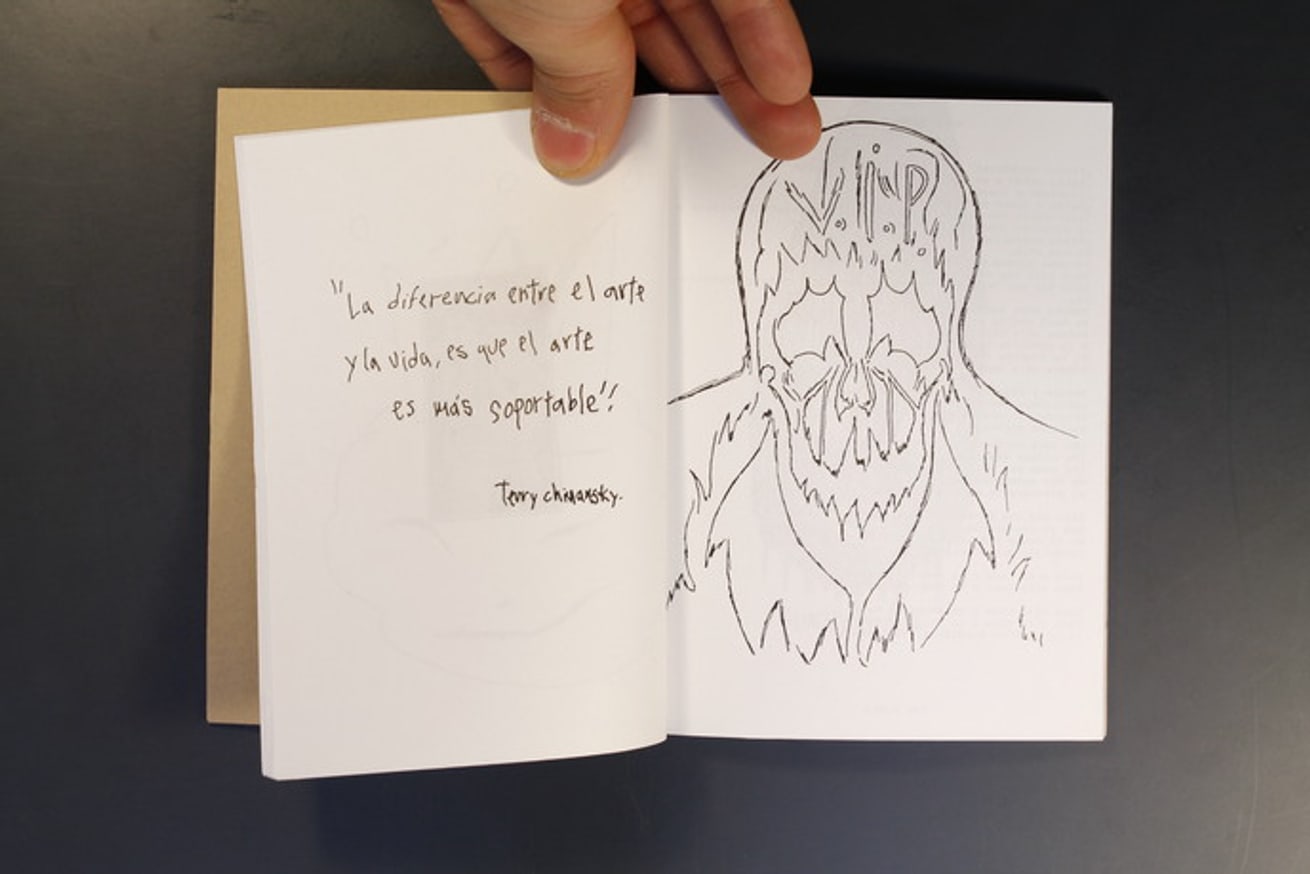 "La diferencia entre el arte
y la vida, es que el arte
es más soportable".
Terry chimansky.
V.I.P